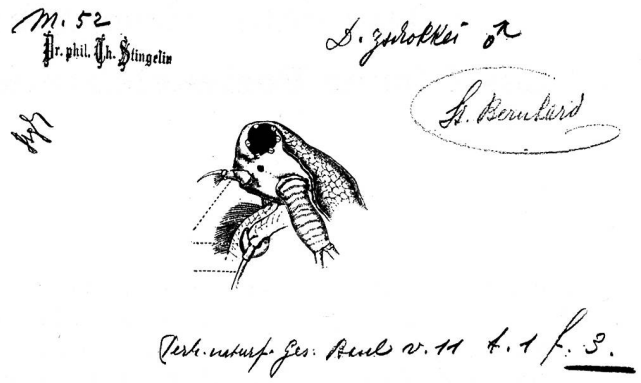 M. 52
Dr. phil. Th. Stingelin
D. zschokkei ♂
St. Bernhard
Verh. naturf. Ges. Basel v. 11 t. 1 f. 3.